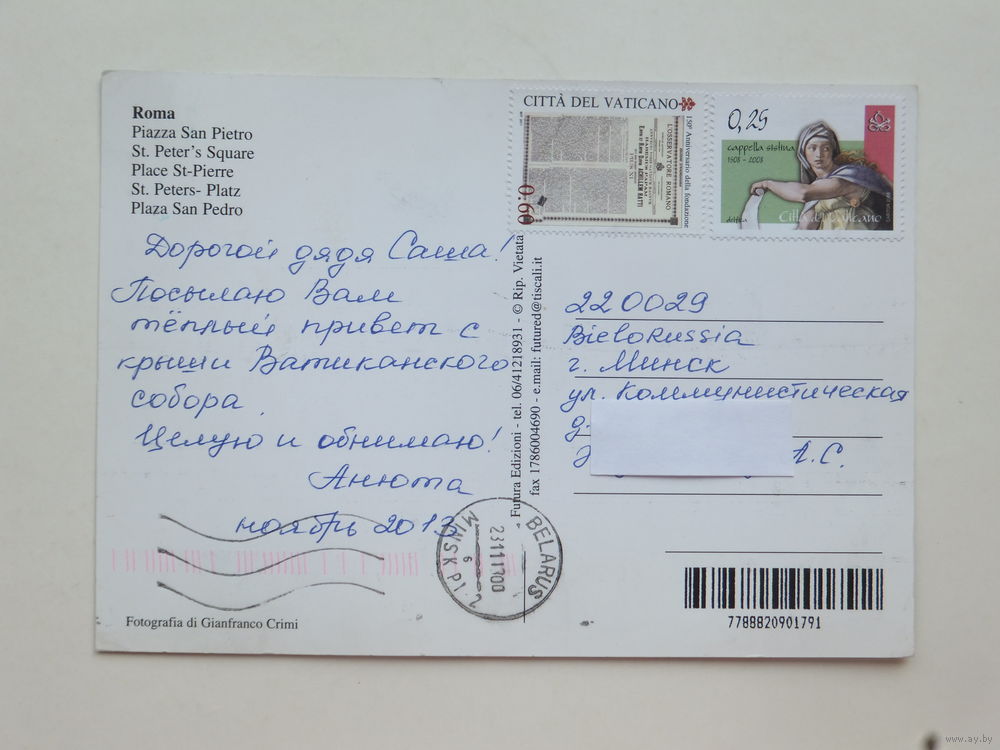 Roma
Piazza San Pietro
St. Peter's Square
Place St-Pierre
St. Peters- Platz
Plaza San Pedro
Дорогой дядя Саша!
Посылаю Вам
тёплый привет с
крыши Ватиканского
собора.
Целую и обнимаю!
Анюта
ноябрь 2013
Fotografia di Gianfranco Crimi
CITTÀ DEL VATICANO
150° Anniversario della fondazione
L'OSSERVATORE ROMANO
0.60
0,25
cappella sistina
1508 - 2008
delfica
Città del Vaticano
Futura Edizioni - tel. 06/41218931 - © Rip. Vietata
fax 1786004690 - e.mail: futured@tiscali.it
220029
Bielorussia
г. Минск
ул. Коммунистическая
д.
А.С.
BELARUS
MINSK PI-2
23111700
6
7788820901791
www.ay.by